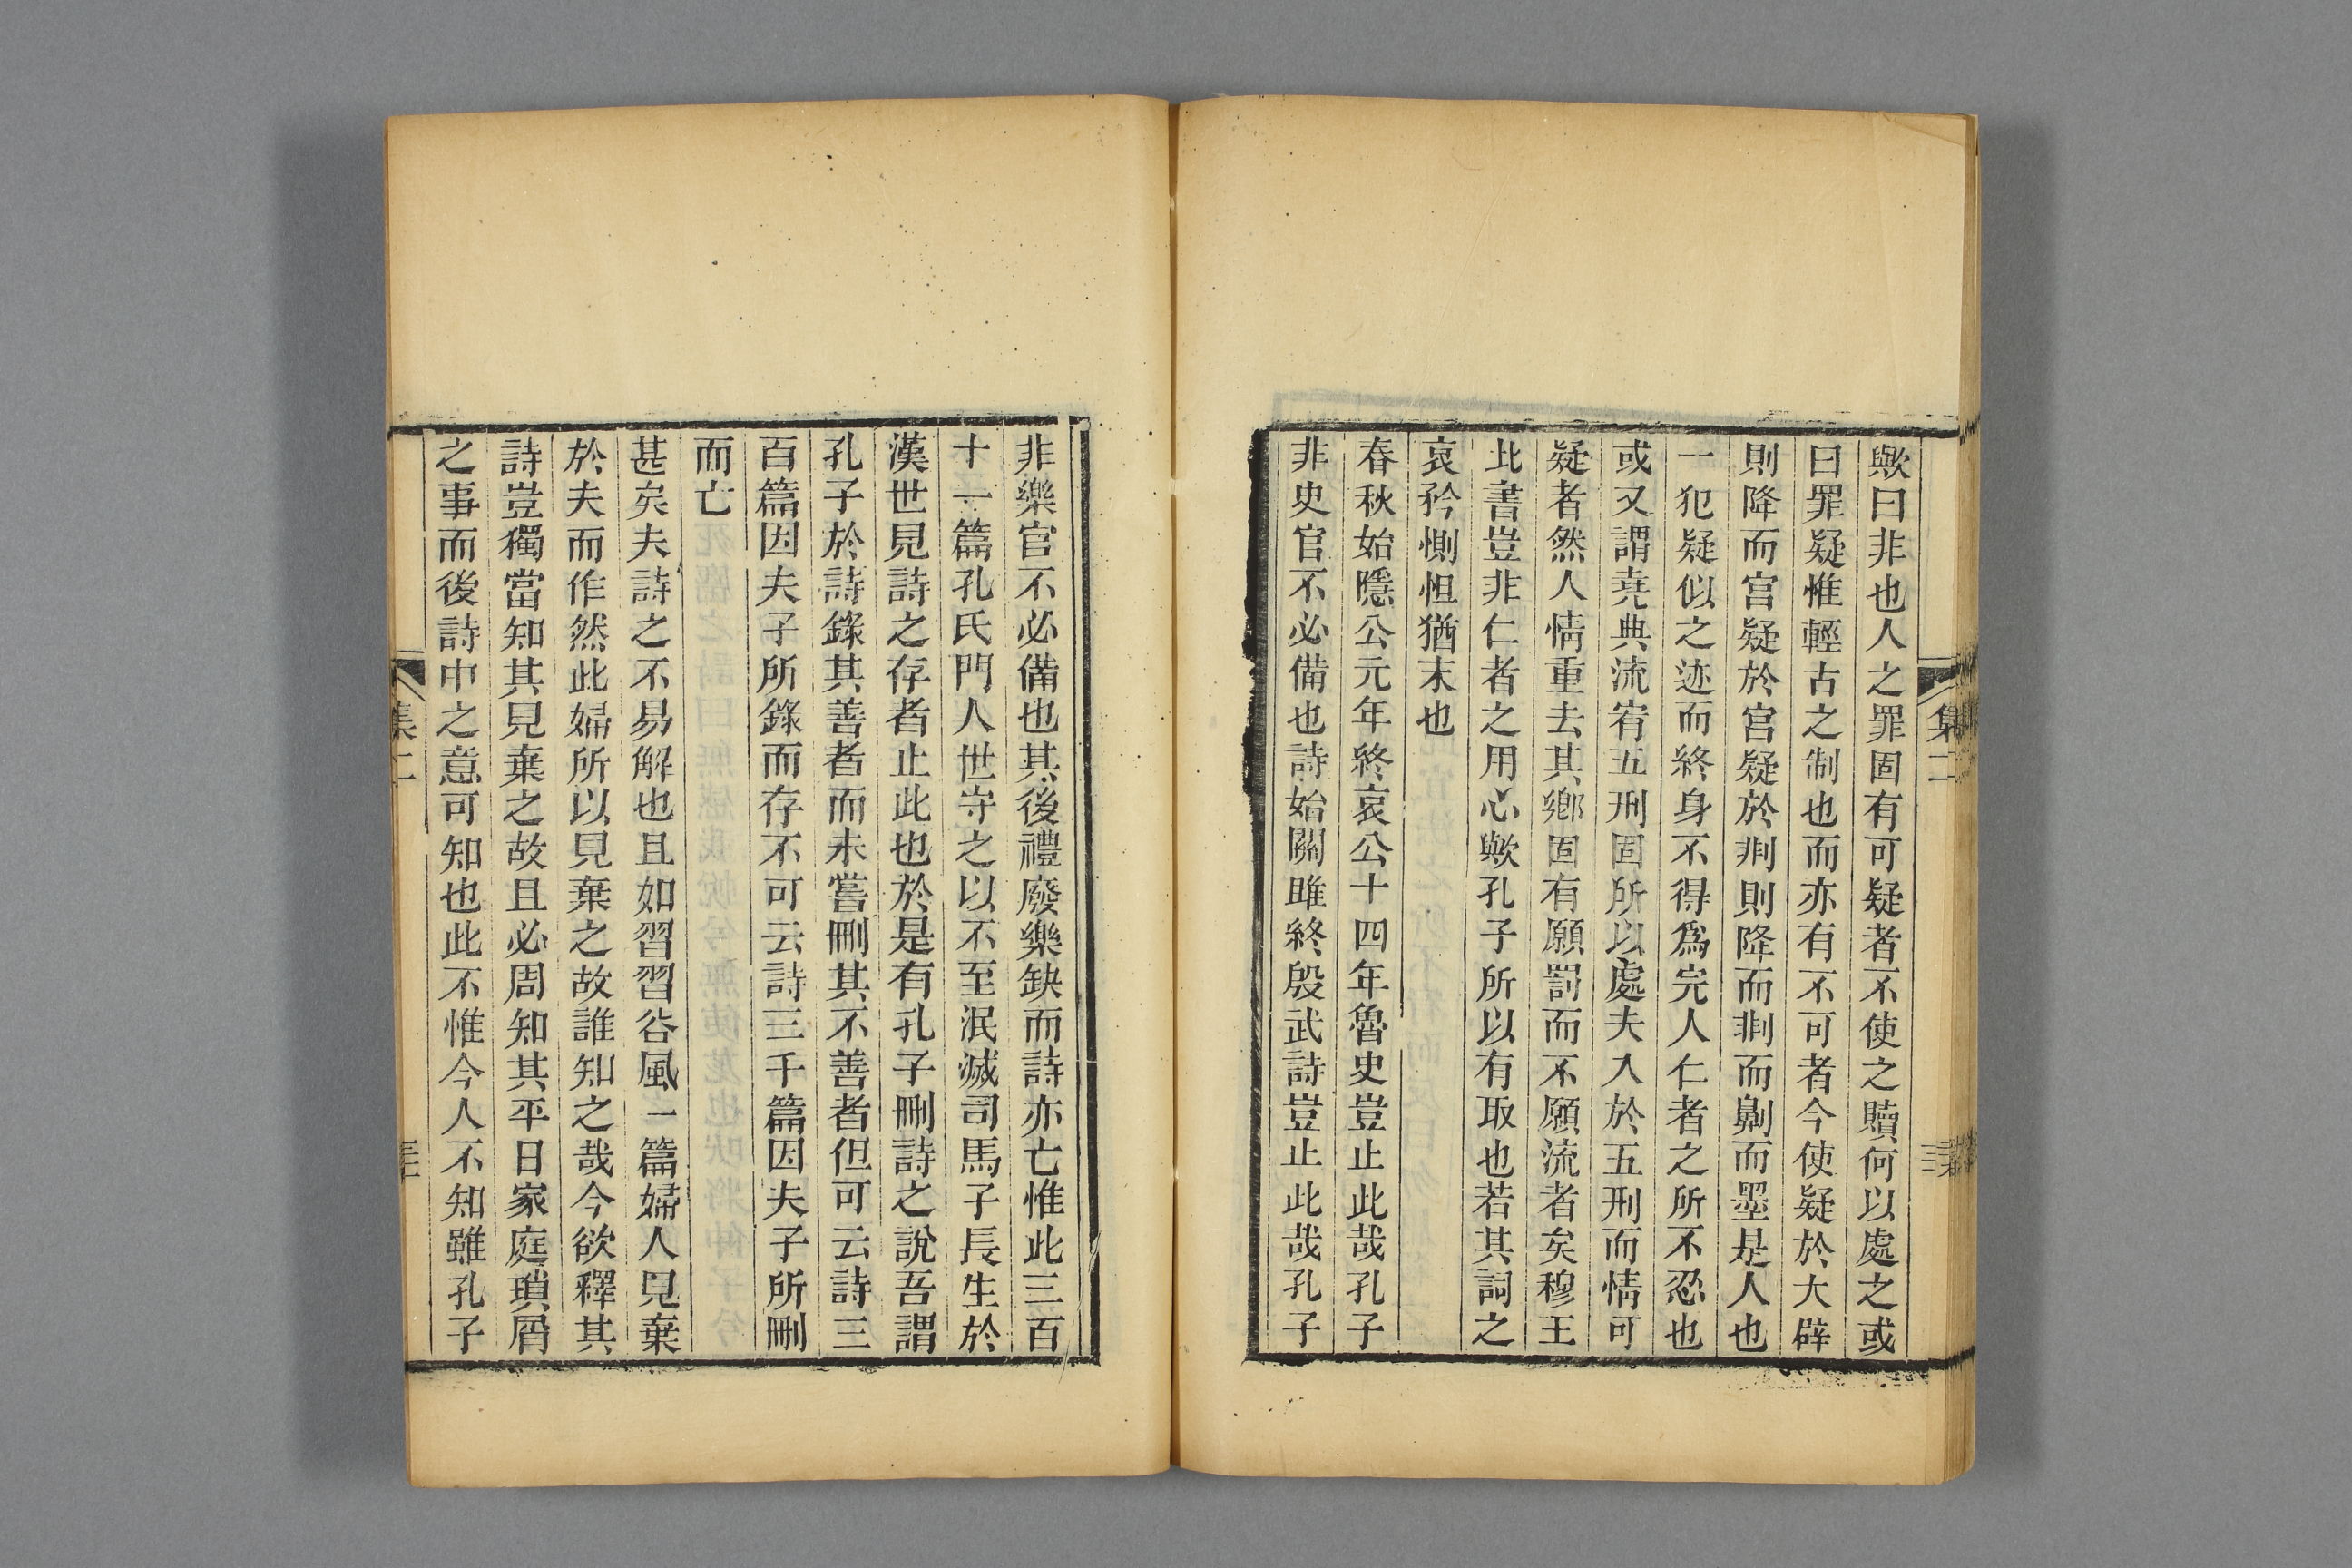 歟曰非也人之罪固有可疑者不使之贖何以處之或
曰罪疑惟輕古之制也而亦有不可者今使疑於大辟
則降而宮疑於宮疑於剕則降而剕而劓而墨是人也
一犯疑似之迹而終身不得爲完人仁者之所不忍也
或又謂堯典流宥五刑固所以處夫入於五刑而情可
疑者然人情重去其鄉固有願罰而不願流者矣穆王
此書豈非仁者之用心歟孔子所以有取也若其詞之
哀矜惻怛猶末也
春秋始隱公元年終哀公十四年魯史豈止此哉孔子
非史官不必備也詩始關雎終殷武詩豈止此哉孔子
集二
非樂官不必備也其後禮廢樂缺而詩亦亡惟此三百
十一篇孔氏門人世守之以不至泯滅司馬子長生於
漢世見詩之存者止此也於是有孔子刪詩之說吾謂
孔子於詩錄其善者而未嘗刪其不善者但可云詩三
百篇因夫子所錄而存不可云詩三千篇因夫子所刪
而亡
甚矣夫詩之不易解也且如習習谷風一篇婦人見棄
於夫而作然此婦所以見棄之故誰知之哉今欲釋其
詩豈獨當知其見棄之故且必周知其平日家庭瑣屑
之事而後詩中之意可知也此不惟今人不知雖孔子
集二